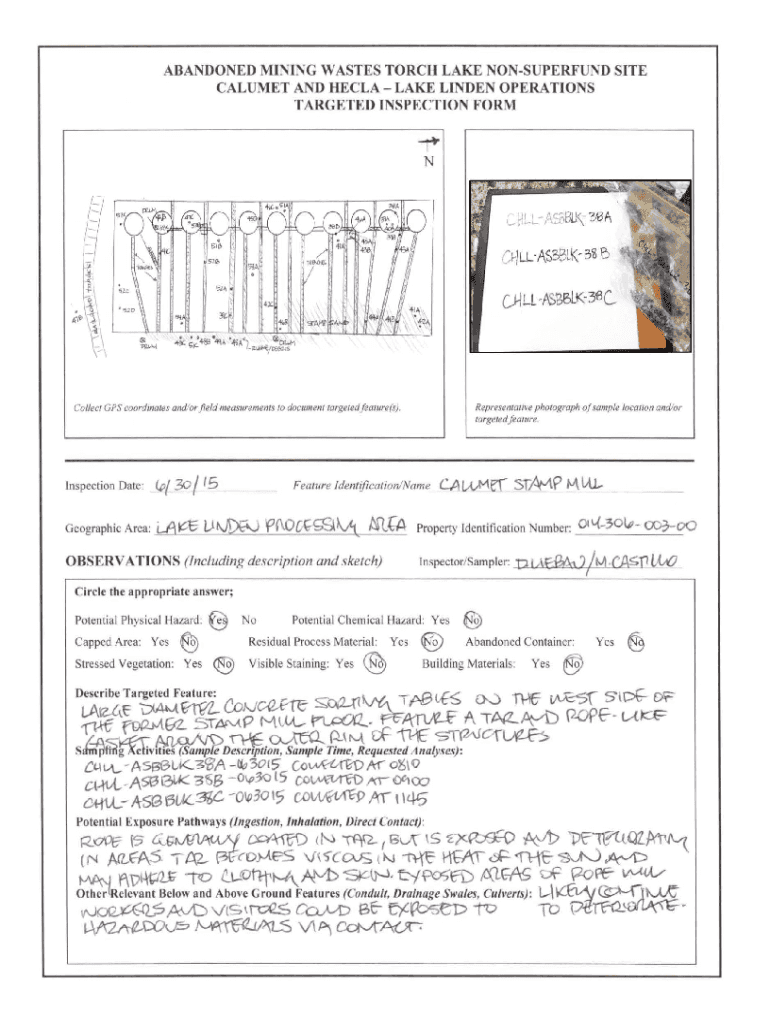 ABANDONED MINING WASTES TORCH LAKE NON-SUPERFUND SITE
CALUMET AND HECLA – LAKE LINDEN OPERATIONS
TARGETED INSPECTION FORM
N
CHLL-ASBBLK-38A
CHLL-ASBBLK-38B
CHLL-ASBBLK-38C
STAMP SAND
Collect GPS coordinates and/or field measurements to document targeted feature(s).
Representative photograph of sample location and/or
targeted feature.
Inspection Date: 6/30/15 Feature Identification/Name CALUMET STAMP MILL
Geographic Area: LAKE LINDEN PROCESSING AREA Property Identification Number: 014-306-003-00
OBSERVATIONS (Including description and sketch) Inspector/Sampler: D.LIEBAU/M.CASTILLO
Circle the appropriate answer;
Potential Physical Hazard: Yes No Potential Chemical Hazard: Yes No
Capped Area: Yes No Residual Process Material: Yes No Abandoned Container: Yes No
Stressed Vegetation: Yes No Visible Staining: Yes No Building Materials: Yes No
Describe Targeted Feature:
LARGE DIAMETER CONCRETE SORTING TABLES ON THE WEST SIDE OF
THE FORMER STAMP MILL FLOOR. FEATURE A TAR AND ROPE-LIKE
GASKET AROUND THE OUTER RIM OF THE STRUCTURES
Sampling Activities (Sample Description, Sample Time, Requested Analyses):
CHLL-ASBBLK38A-063015 COLLECTED AT 0810
CHLL-ASBBLK38B-063015 COLLECTED AT 0900
CHLL-ASBBLK38C-063015 COLLECTED AT 1145
Potential Exposure Pathways (Ingestion, Inhalation, Direct Contact):
ROPE IS GENERALLY COATED IN TAR, BUT IS EXPOSED AND DETERIORATING
IN AREAS. TAR BECOMES VISCOUS IN THE HEAT OF THE SUN AND
MAY ADHERE TO CLOTHING AND SKIN. EXPOSED AREAS OF ROPE WILL
Other Relevant Below and Above Ground Features (Conduit, Drainage Swales, Culverts): LIKELY CONTINUE
WORKERS AND VISITORS COULD BE EXPOSED TO TO DETERIORATE.
HAZARDOUS MATERIALS VIA CONTACT.